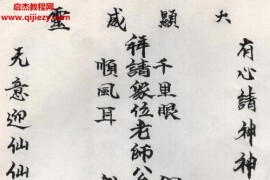 大顯威靈
有心請神神
千里眼
拜請眾位老師公
順風耳
无意迎仙仙
启杰教程网
www.qijiejc.com